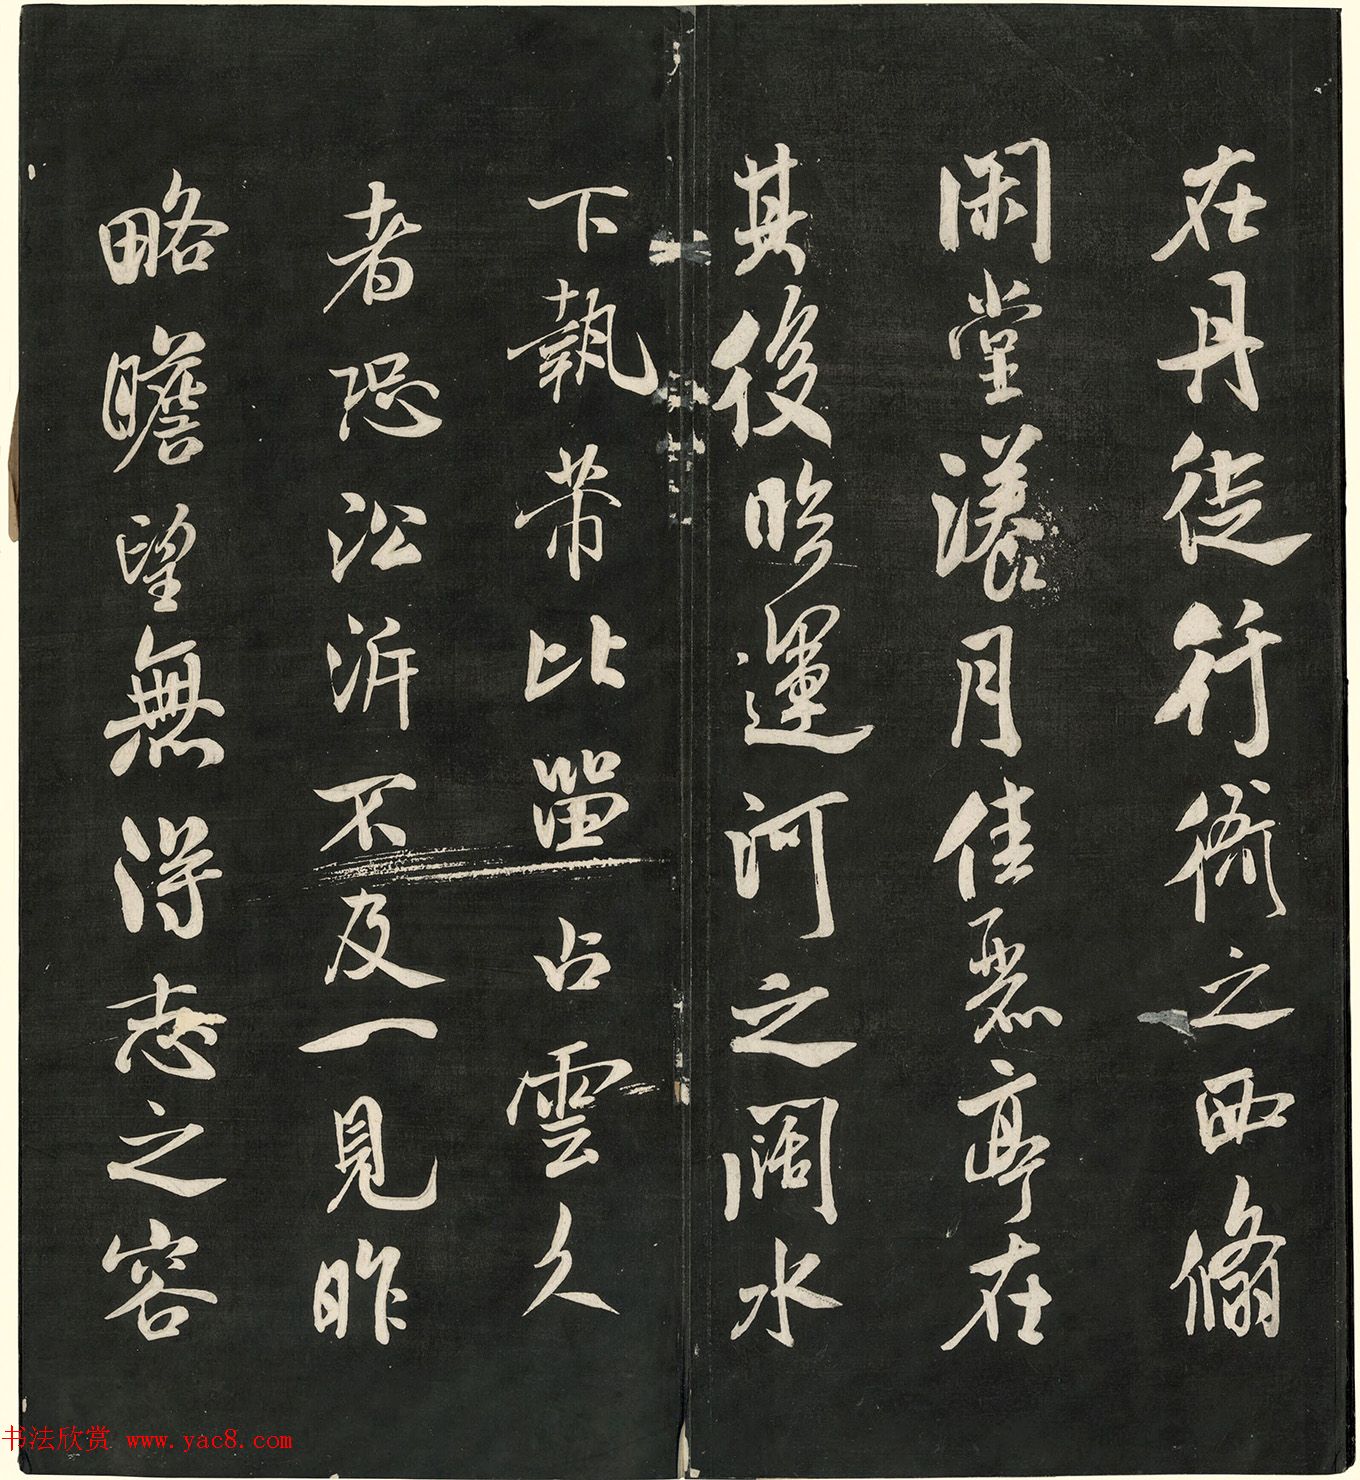 在丹徒行衙之西翛
閑堂漾月佳麗亭在
其後臨運河之闊水
下執芾比留占雲久
者恐㳂泝不及一見昨
略瞻望無得志之容
书法欣赏 www.yac8.com